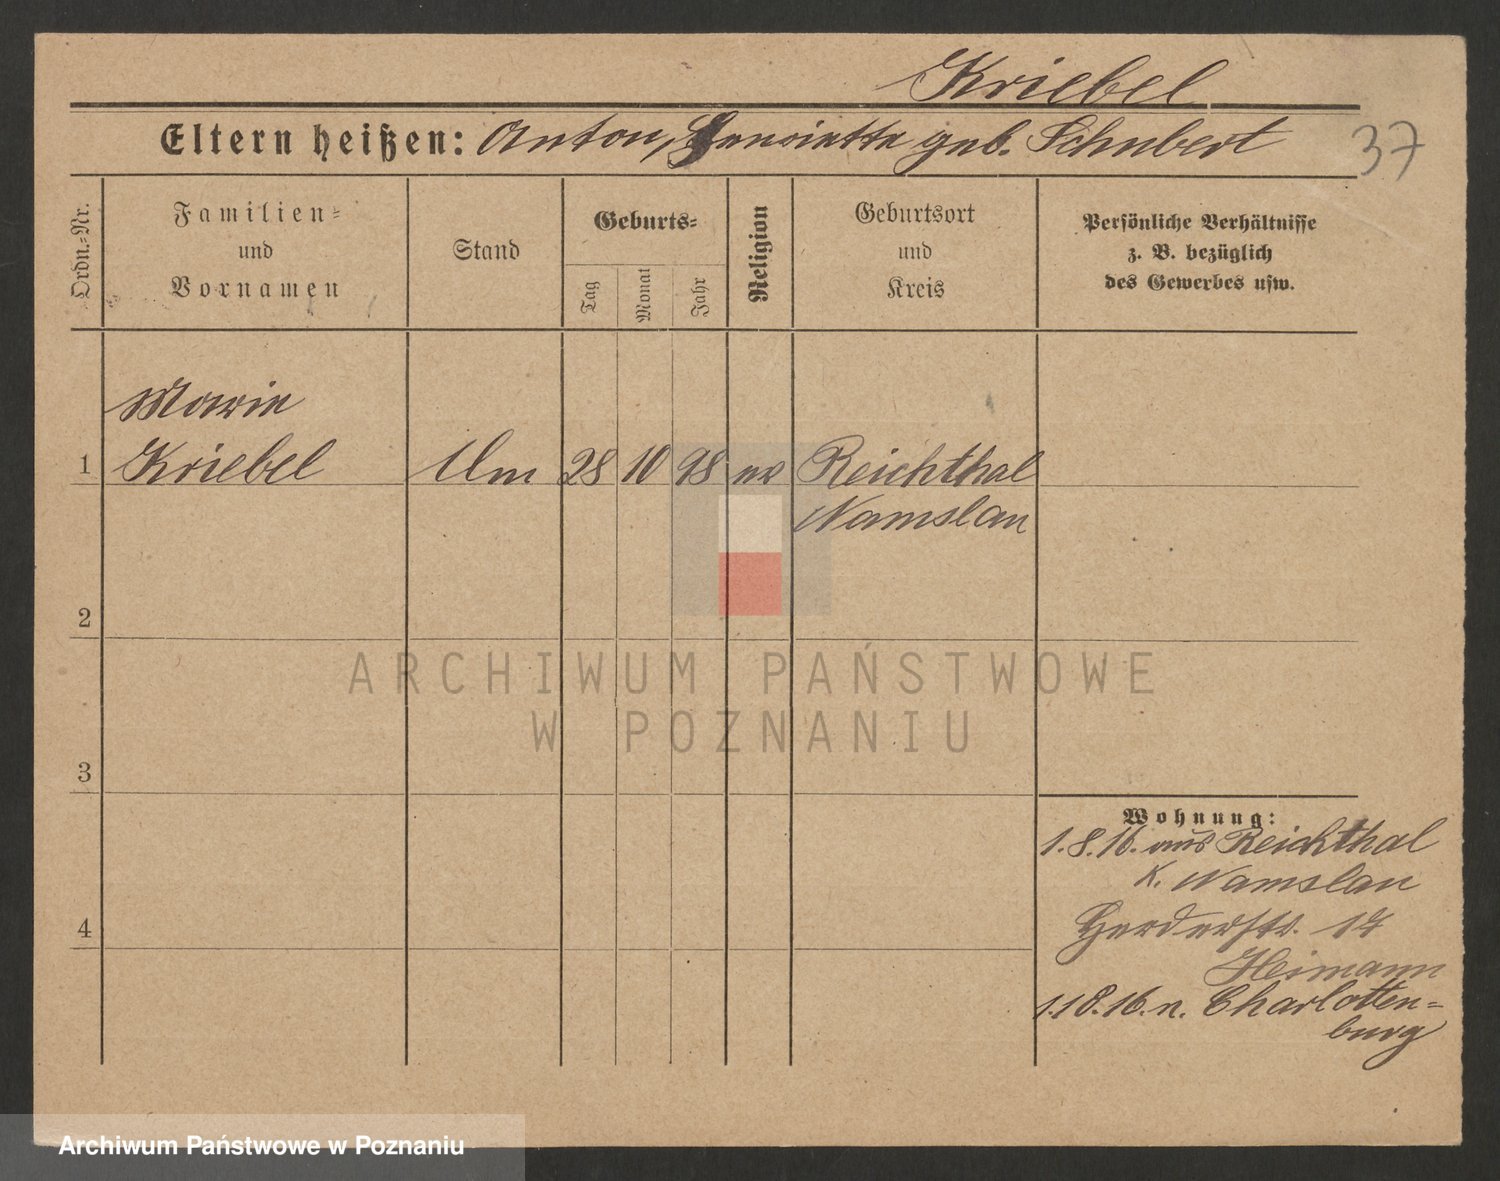 Kriebel
Eltern heißen: Anton, Henriette geb. Schubert
37
Ordn.-Nr.
Familien-
und
Vornamen
Stand
Geburts-
Tag
Monat
Jahr
Religion
Geburtsort
und
Kreis
Persönliche Verhältnisse
z. B. bezüglich
des Gewerbes usw.
Marie
1 Kriebel 28 10 98 ev Reichthal
Namslau
2
3
4
ARCHIWUM PAŃSTWOWE
W POZNANIU
Wohnung:
1.8.16. aus Reichthal
K. Namslau
Herderstr. 14
Heimann
n. Charlotten-
burg
Archiwum Państwowe w Poznaniu